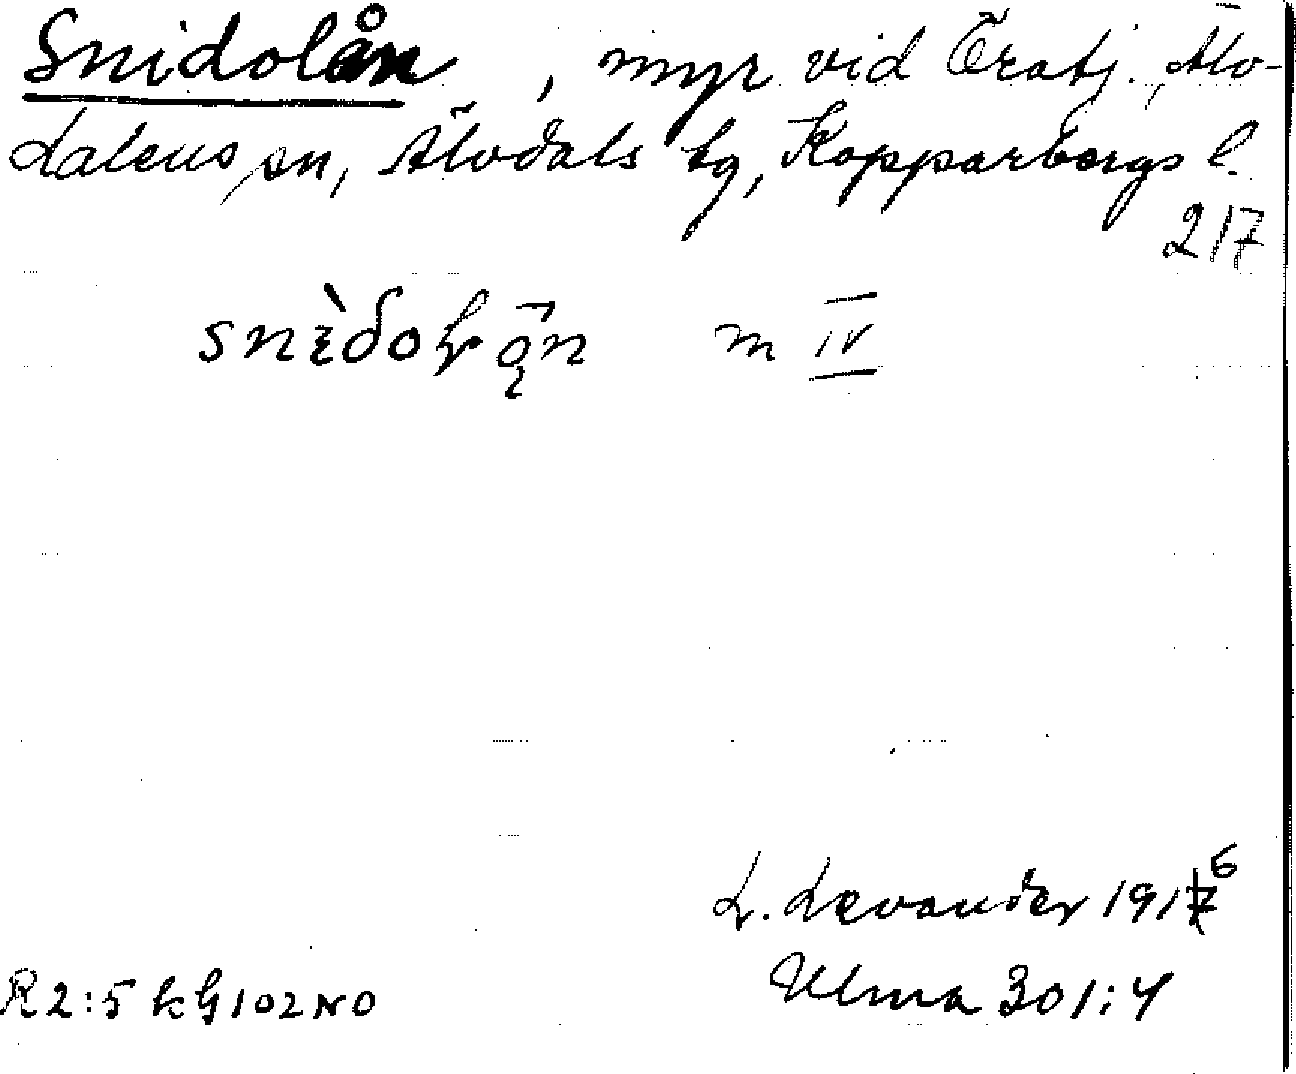 Snidolån, myr vid Öratj., Älv-
dalens sn, Älvdals tg, Kopparbergs l.
217
m IV
L. Levander 1916
Ulma 301:4
R 2:5 k G 102 NO